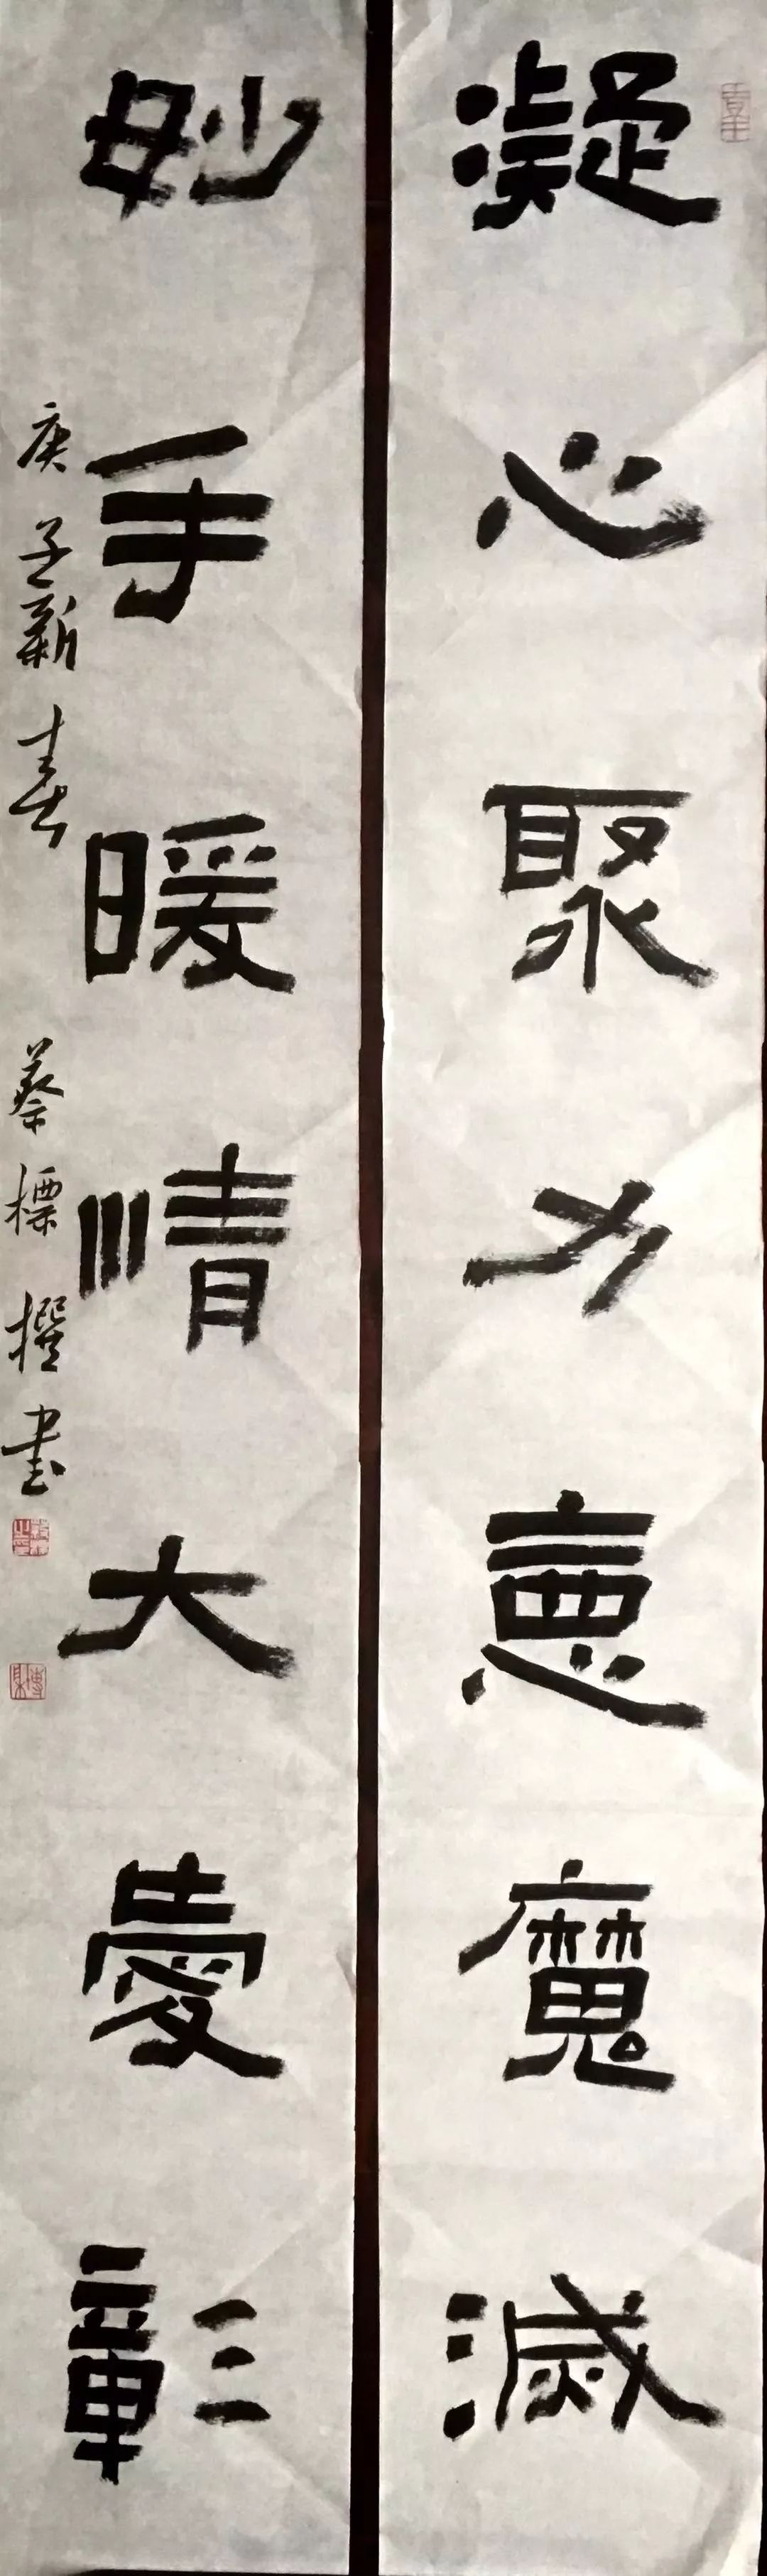 凝心聚力惡魔滅
妙手暖情大愛彰
庚子新春 蔡標撰書